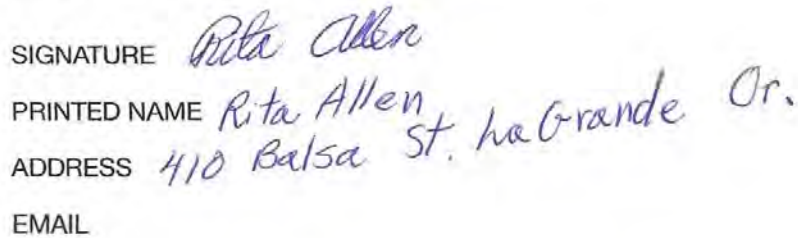 SIGNATURE Rita Allen
PRINTED NAME Rita Allen
ADDRESS 410 Balsa St. La Grande Or.
EMAIL